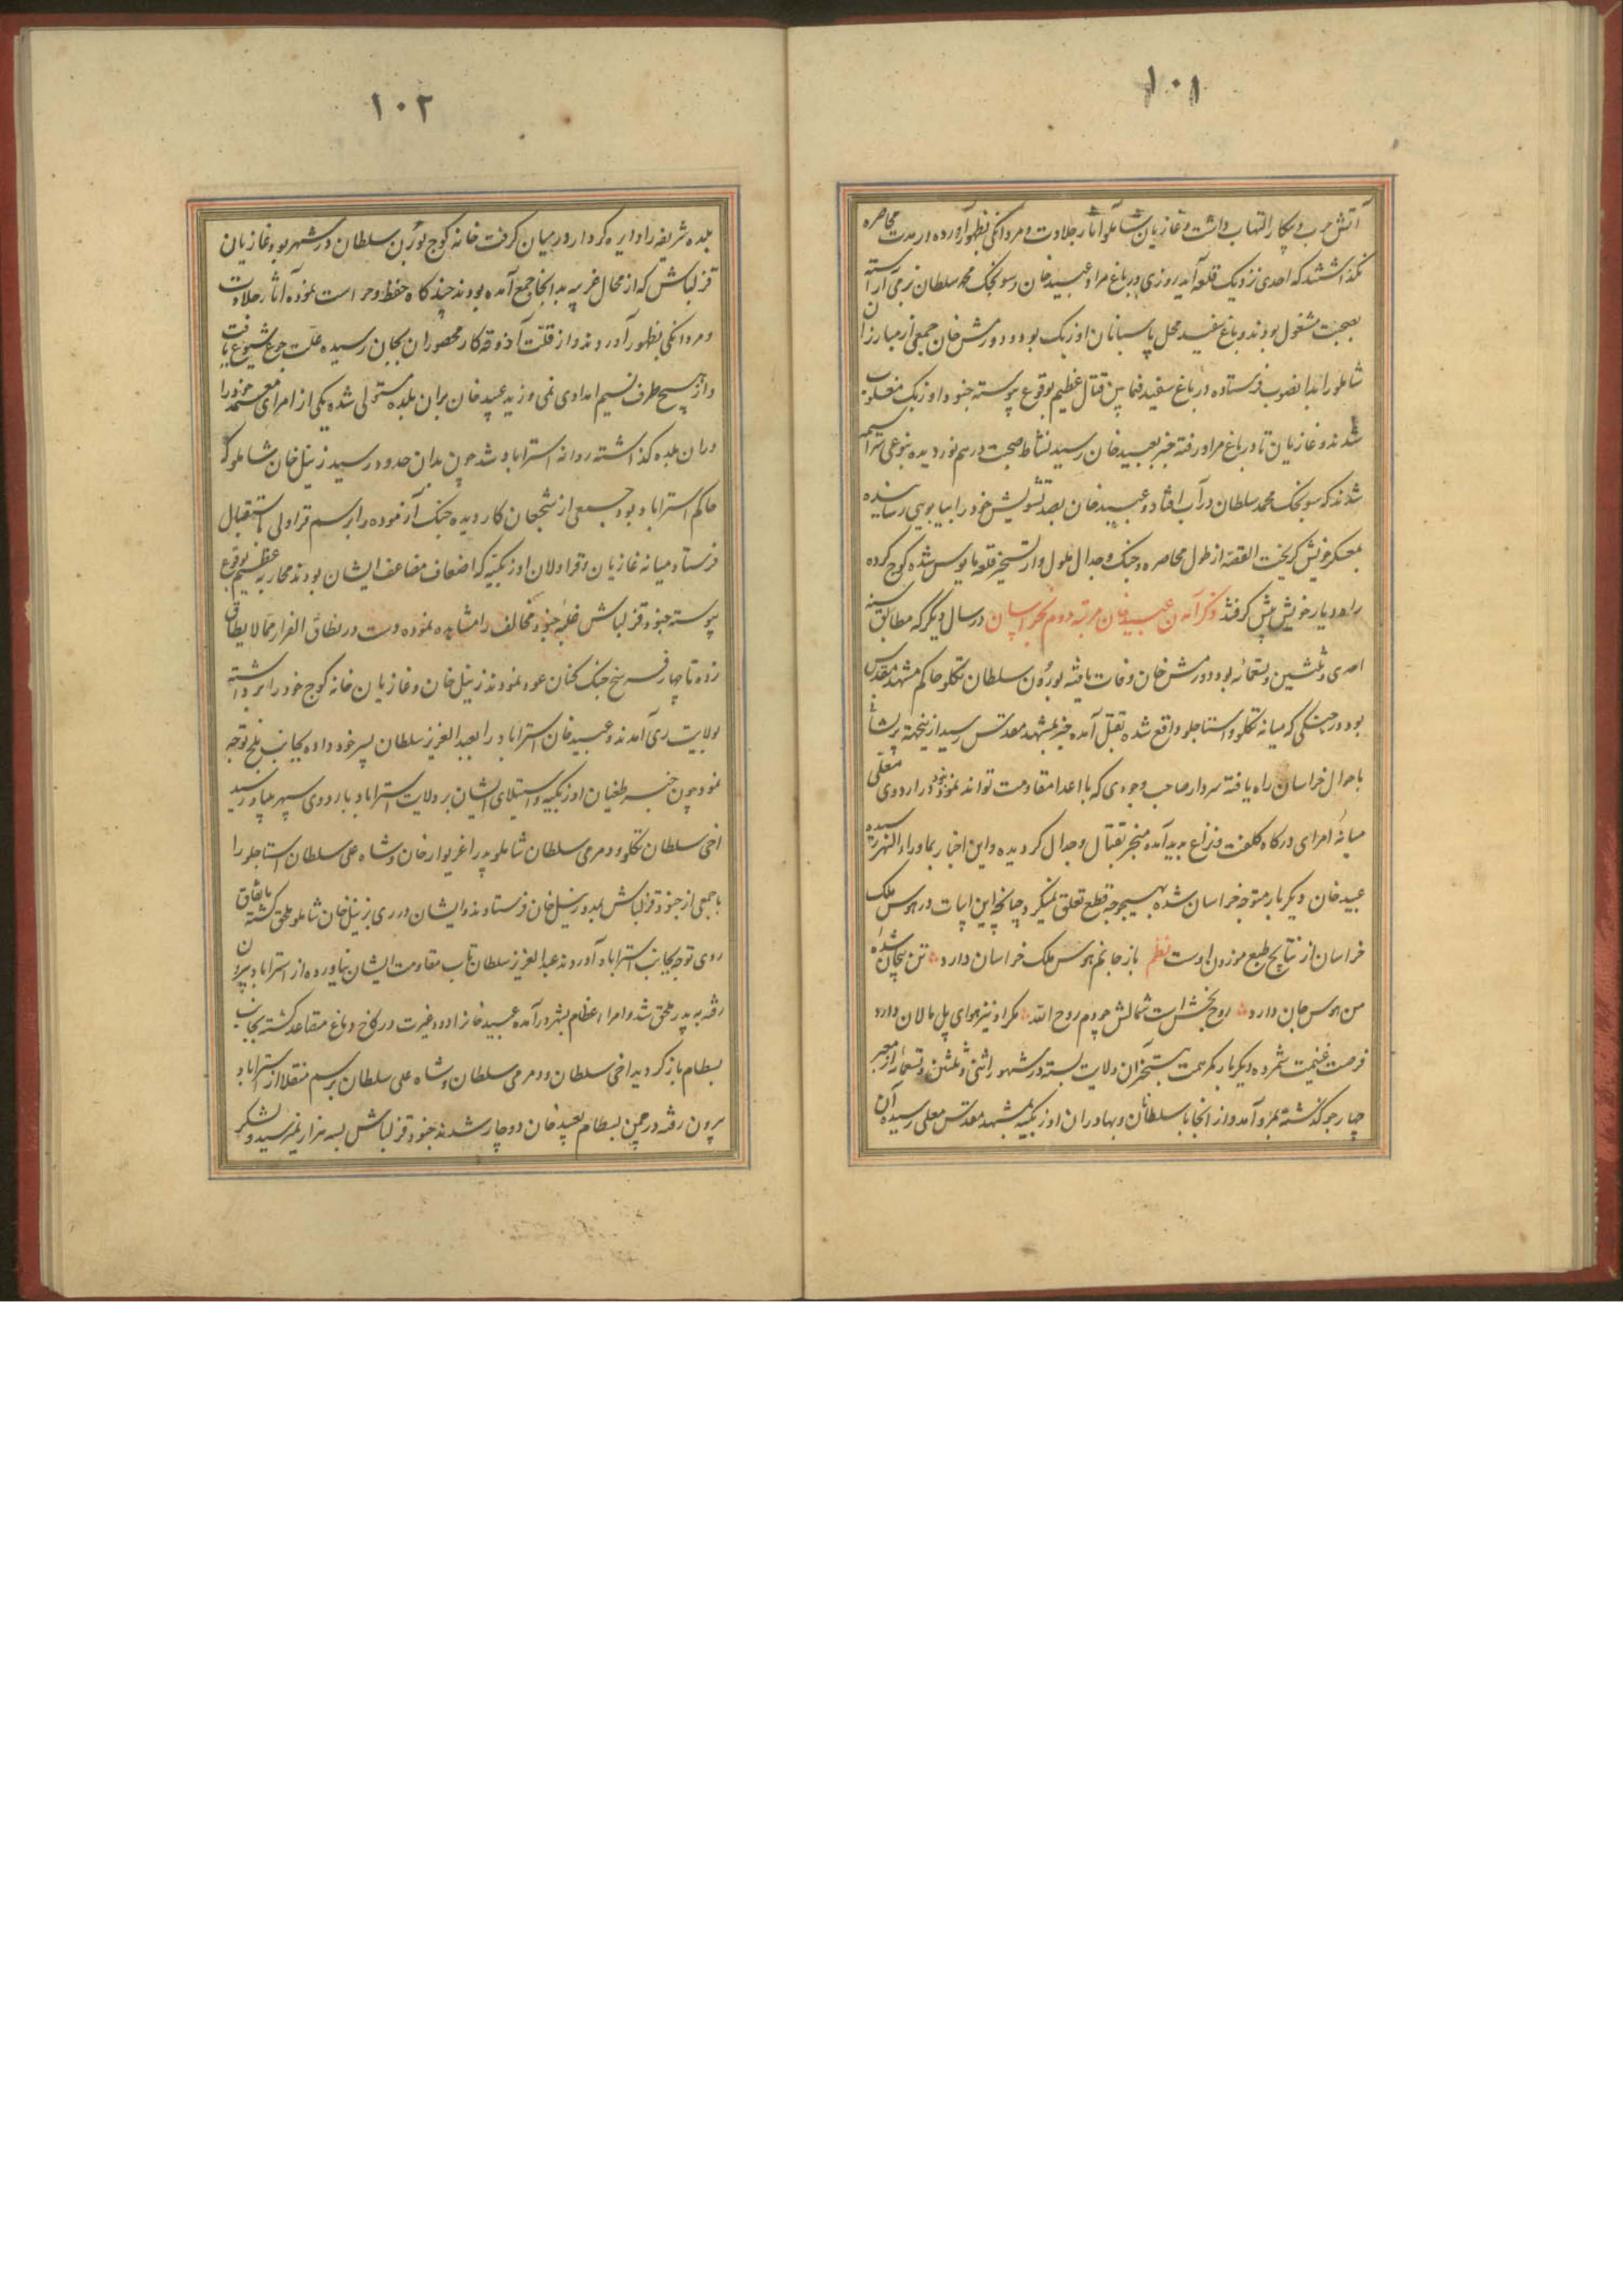 ۱۰۱
آتش حرب و پیکار التهاب داشت و غازیان شاملو آثار جلادت و مردانگی بظهور آورده در مدت محاصره
نگذاشتند که احدی نزدیک قلعه آید روزی در باغ مراد عبید خان و سونجک محمد سلطان بزمی آراسته
بصحبت مشغول بودند و باغ سفید محل پاسبانان اوزبک بود و دورمش خان جمعی از مبارزان
شاملو را بدانصوب فرستاده در باغ سفید فیمابین قتال عظیم بوقوع پیوسته جنود اوزبک مغلوب
شدند و غازیان تا در باغ مراد رفته خبر بعبید خان رسید نشاط صحبت درهم نوردیده بنوعی سراسیمه
شدند که سونجک محمد سلطان در آب افتاد و عبید خان بصد تشویش خود را بیابویی رسانیده
بمعسکر خویش گریخت القصه از طول محاصره و جنک و جدال ملول و از تسخیر قلعه مایوس شده کوچ کرده
راه دیار خویش پیش گرفتند ذکر آمدن عبید خان مرتبه دوم بخراسان در سال دیگر که مطابق سنه
احدی و ثلثین و تسعمائه بود دورمش خان وفات یافته بورون سلطان تکلو حاکم مشهد مقدس
بود در جنگی که میانه تکلو و استاجلو واقع شده بقتل آمده خبر بمشهد مقدس رسید ازینجهة پریشانی
باحوال خراسان راه یافته سردار صاحب وجودی که با اعدا مقاومت تواند نمود نبود و در اردوی معلی
میانه امرای درگاه کلفت و نزاع پدید آمده منجر بقتال و جدال گردیده و این اخبار بماوراء النهر رسیده
عبید خان دیگر بار متوجه خراسان شده بهیچوجه قطع تعلق نمیکرد چنانچه این ابیات در هوس ملک
خراسان از نتایج طبع موزون اوست نظم باز جانم هوس ملک خراسان دارد تن بیجان شده
من هوس جان دارد روح بخش است شمالش چو دم روح الله مکر او نیز هوای پل مالان دارد
فرصت غنیمت شمرده دیگر بار کمر همت بتسخیر آن ولایت بسته در شهور اثنی و ثلثین و تسعمائه از معبر
چهارجو گذشته بمرو آمد و از انجا با سلطانان و بهادران اوزبکیه بمشهد مقدس معلی رسیده آن
۱۰۲
بلده شریفه را دایره کردار در میان گرفت خانه کوچ بورن سلطان در شهر بود غازیان
قزلباش که از محال غریبه بدانجا جمع آمده بودند چند کاه حفظ و حراست نموده آثار جلادت
و مردانگی بظهور آوردند و از قلت آذوقه کار محصوران بجان رسیده علت جوع شیوع یافت
و از هیچ طرف نسیم امدادی نمی وزید عبید خان بران بلده مستولی شده یکی از امرای معتمد خود را
دران بلده گذاشته روانه استراباد شد چون بدان حدود رسید زینل خان شاملو که
حاکم استراباد بود جمعی از شجعان کار دیده جنک آزموده را برسم قراولی باستقبال
فرستاد میانه غازیان و قراولان اوزبکیه که اضعاف مضاعف ایشان بودند محاربه عظیم بوقوع
پیوسته جنود قزلباش غلبه جنود مخالف را مشاهده نموده دست در نطاق الفرار مما لا یطاق
زده تا چهار فرسخ جنک کنان عود نمودند زینل خان و غازیان خانه کوچ خود را برداشته
بولایت ری آمدند و عبید خان استراباد را بعبد العزیز سلطان پسر خود داده بجانب بلخ توجه
نمود چون خبر طغیان اوزبکیه و استیلای ایشان بر ولایت استراباد باردوی سپهر بنیاد رسید
اخی سلطان تکلو و دمری سلطان شاملو پدر اغزیوار خان و شاه علی سلطان استاجلو را
با جمعی از جنود قزلباش بمدد زینل خان فرستادند و ایشان در ری بزینل خان شاملو ملحق گشته باتفاق
روی توجه بجانب استراباد آوردند عبد العزیز سلطان تاب مقاومت ایشان نیاورده از استراباد بیرون
رفته به پدر ملحق شد و امراء عظام بشهر درآمده عبید خانرا دود غیرت در کاخ دماغ متصاعد گشته بجانب
بسطام باز گردید اخی سلطان و دمری سلطان و شاه علی سلطان برسم منقلا از استراباد
بیرون رفته در چمن بسطام بعبید خان دوچار شدند جنود قزلباش بسه هزار نمیرسید و لشکر